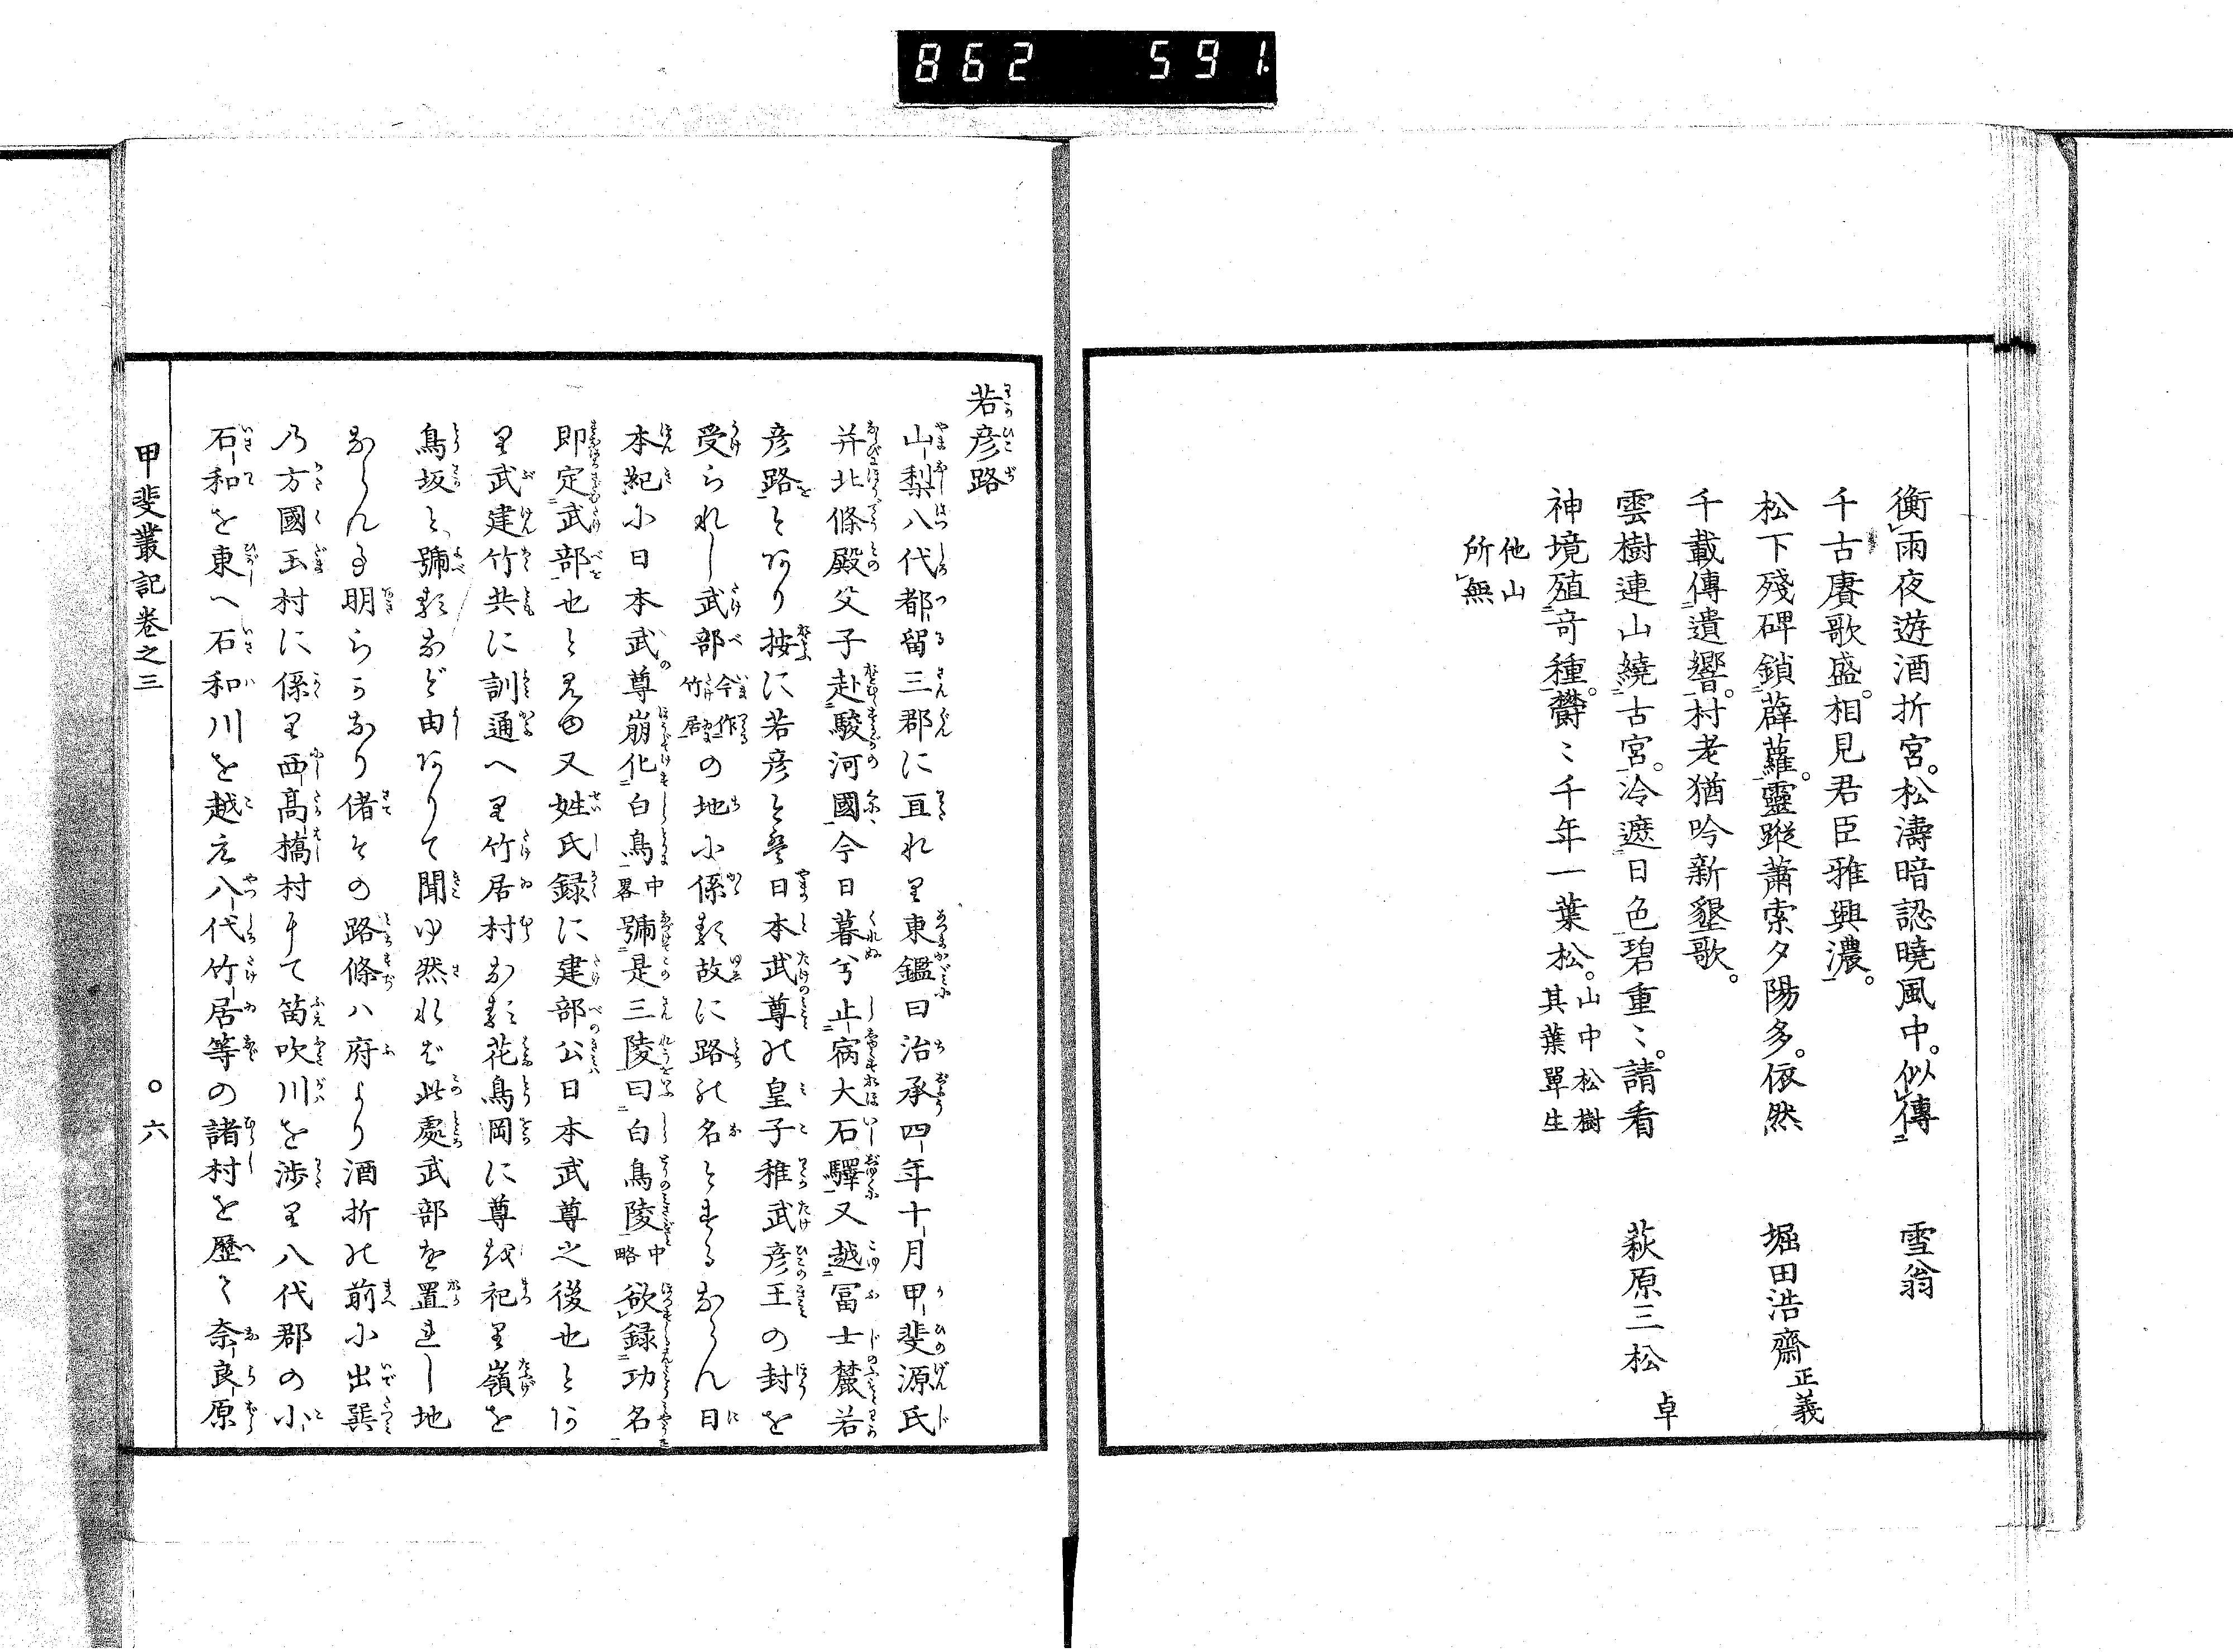 862 591.
衡雨夜遊酒折宮。松濤暗認曉風中。似傳
雪翁
千古賡歌盛。相見君臣雅興濃。
松下殘碑鎖薜蘿。靈蹤蕭索夕陽多。依然
堀田浩齋正義
千載傳遺響。村老猶吟新墾歌。
雲樹連山繞古宮。冷遮日色碧重〻。請看
萩原三松 卓
神境殖竒種。欝〻千年一葉松。山中松樹其葉單生
他山所無
若彦路
山梨八代都留三郡に亘れり東鑑曰治承四年十月甲斐源氏
并北條殿父子赴駿河國今日暮兮止宿大石驛又越冨士麓若
彦路をとあり按に若彦とは日本武尊の皇子稚武彦王の封を
受られし武部今作竹居の地に係る故に路の名とするならん日
本紀に日本武尊崩化白鳥中畧號是三陵曰白鳥陵中略欲録功名
即定武部也と見ゆ又姓氏録に建部公日本武尊之後也とあ
り武建竹共に訓通へり竹居村なる花鳥岡に尊を祀り嶺を
鳥坂と號るなど由ありて聞ゆ然れば此處武部を置れし地
ならん事明らかなり偖その路條ハ府より酒折の前に出巽
乃方國玉村に係り西高橋村にて笛吹川を渉り八代郡の小
石和を東へ石和川を越え八代竹居等の諸村を歷て奈良原
甲斐叢記卷之三 〇六